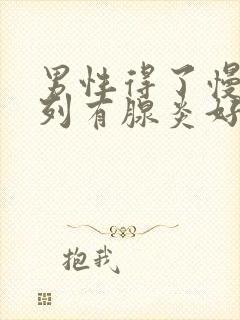 男性得了慢
列有腺炎好
抱我